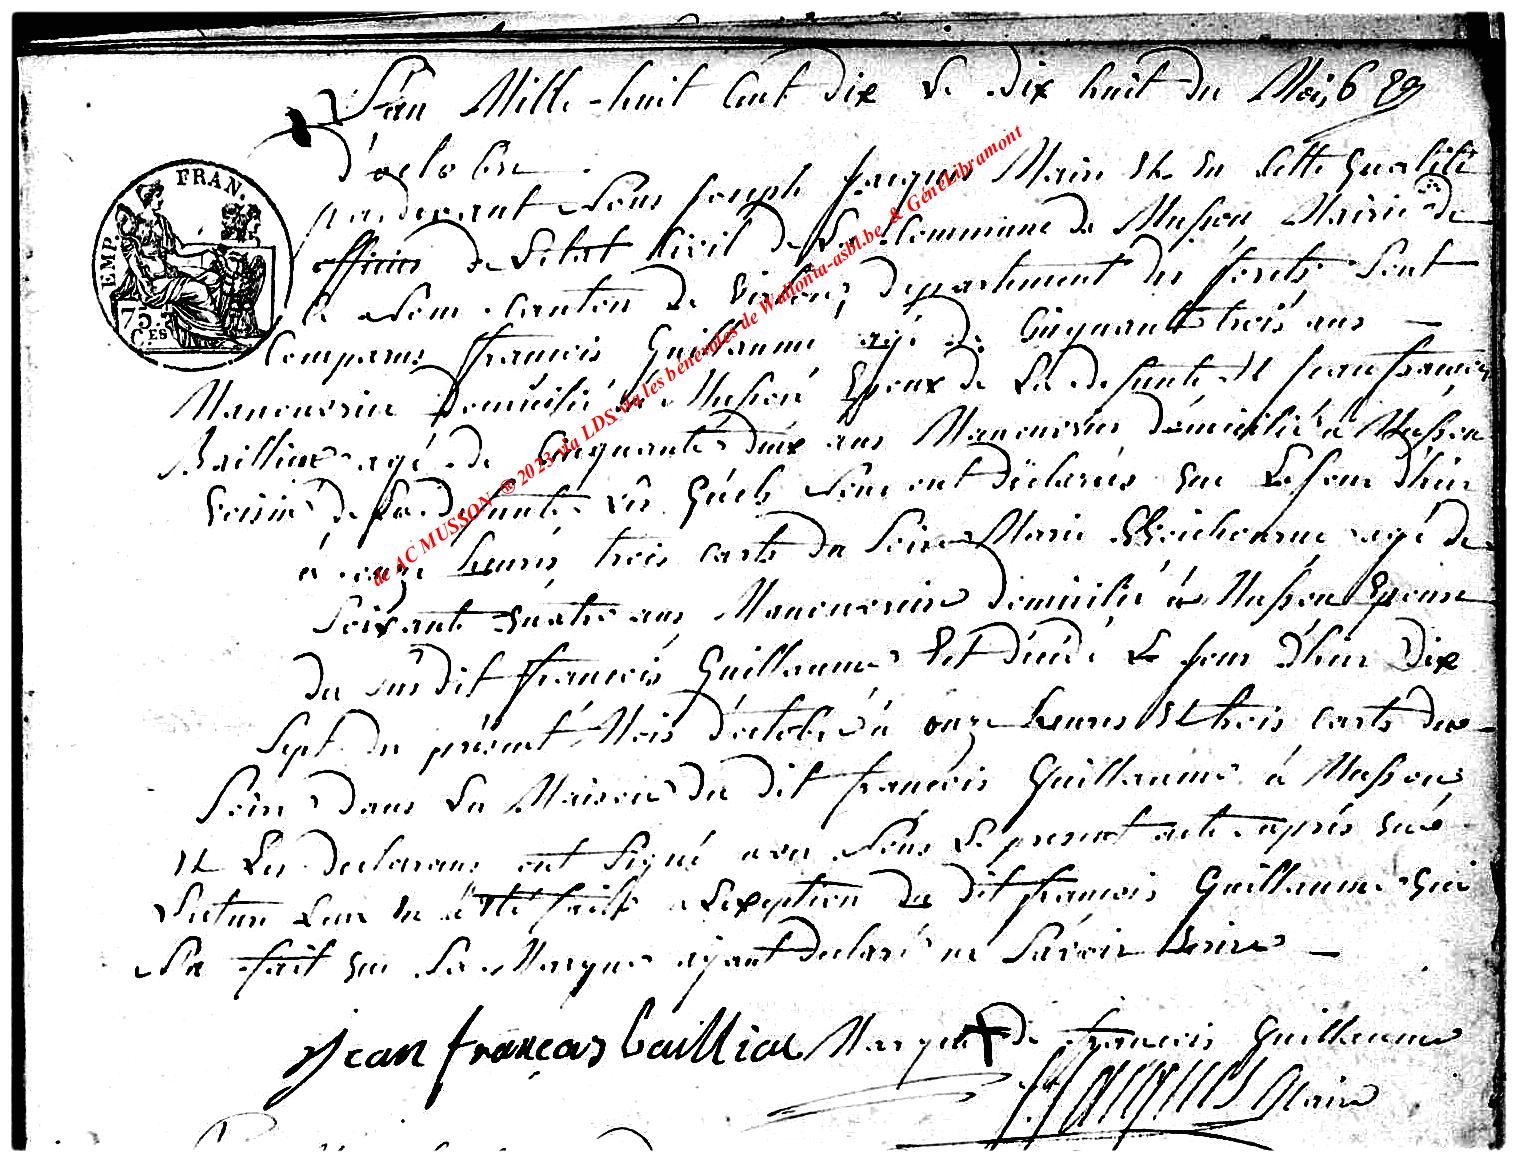 L'an Mille-huit Cent dix Le dix huit du Mois
d'octobre
pardevant Nous Joseph Jacques Maire et en Cette qualité
officier de L'état Civil de La Commune de Musson Mairie de
Ce Nom canton de Virton, departement des forêts Sont
Comparus francois Guillaume agé de Cinquante trois ans
Manouvrier domicilié à Musson Epoux de La defunte et Jean francois
Baillieux agé de Cinquante deux ans Manouvrier domicilié à Musson
Voisin de La defunte Les quels Nous ont déclarés que Le Jour d'hier
à onze heures trois carts du Soir Marie agé de
Soixante quatre ans Manouvrier domicilié à Musson Epouse
du susdit francois Guillaume Est décédé Le Jour d'hier Dix
Sept du présent Mois d'octobre à onze heures et trois carts du
Soir dans La Maison du dit francois Guillaume à Musson
et Les declarans ont Signé avec Nous Le present acte après que
Lecture Leur en a été faite à L'exeption du dit francois Guillaume qui
N'a fait que Sa Marque ayant declaré ne Savoir Ecrire
jean françois bailliae Marque de francois Guillaume
Jacques Maire
EMP. FRAN.
75.
CES
de AC MUSSON ®2023 via LDS via les bénévoles de Wallonia-asbl.be & Généalibramont